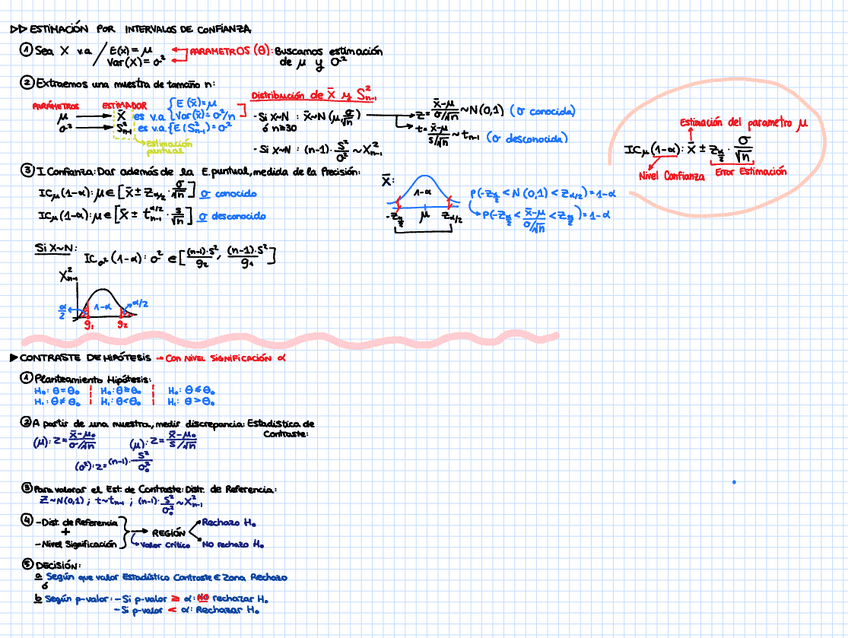 ▷▷ ESTIMACIÓN POR INTERVALOS DE CONFIANZA
① Sea X v.a / E(x) = μ
Var(x) = σ²
← PARAMETROS (θ): Buscamos estimación
de μ y σ²
② Extraemos una muestra de tamaño n:
PARÁMETROS ESTIMADOR
μ → X̄ es v.a { E(x̄) = μ
Var(x̄) = σ²/n
σ² → S²ₙ₋₁ es v.a { E(S²ₙ₋₁) = σ²
Estimación
puntual
Distribución de X̄ y S²ₙ₋₁
- Si X~N: X̄~N(μ, σ/√n)
ó n≥30
→ Z = (x̄-μ)/(σ/√n) ~ N(0,1) (σ conocida)
→ t = (x̄-μ)/(s/√n) ~ tₙ₋₁ (σ desconocida)
- Si X~N: (n-1)·S²/σ² ~ X²ₙ₋₁
③ I. Confianza: Dar además de la E. puntual, medida de la Precisión:
IC_μ(1-α): μ ∈ [x̄ ± Z_α/2 · σ/√n] σ conocido
IC_μ(1-α): μ ∈ [x̄ ± t^α/2_n-1 · s/√n] σ desconocido
X̄:
1-α
-Z_α/2 μ Z_α/2
P(-Z_α/2 < N(0,1) < Z_α/2) = 1-α
P(-Z_α/2 < (x̄-μ)/(σ/√n) < Z_α/2) = 1-α
Si X~N: IC_σ²(1-α): σ² ∈ [(n-1)·s²/g₂, (n-1)·s²/g₁]
X²ₙ₋₁
α/2 1-α α/2
g₁ g₂
Estimación del parametro μ
IC_μ(1-α): X̄ ± Z_α/2 · σ/√n
Nivel Confianza Error Estimación
▶ CONTRASTE DE HIPÓTESIS → CON NIVEL SIGNIFICACIÓN α
① Planteamiento Hipótesis:
H₀: θ = θ₀ | H₀: θ ≥ θ₀ | H₀: θ ≤ θ₀
H₁: θ ≠ θ₀ | H₁: θ < θ₀ | H₁: θ > θ₀
② A partir de una muestra, medir discrepancia: Estadística de
Contraste:
(μ): Z = (x̄-μ₀)/(σ/√n) (μ): Z = (x̄-μ₀)/(s/√n)
(σ²): Z = (n-1)·S²/σ₀²
③ Para valorar el Est. de Contraste: Distr. de Referencia:
Z~N(0,1) ; t~tₙ₋₁ ; (n-1)·S²/σ₀² ~ X²ₙ₋₁
④ - Dist. de Referencia
+
- Nivel Significación
} → REGIÓN
Valor Crítico
Rechazo H₀
No rechazo H₀
⑤ DECISIÓN:
a Según que valor Estadístico Contraste ∈ Zona Rechazo
ó
b Según p-valor: - Si p-valor ≥ α: NO rechazar H₀
- Si p-valor < α: Rechazar H₀